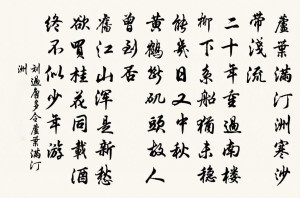 蘆葉滿汀洲寒沙
带淺流
二十年重過南樓
柳下系船猶未穩
能幾日又中秋
黄鶴斷矶頭故人
曾到否
舊江山渾是新愁
欲買桂花同載酒
終不似少年游
劉過唐多令蘆葉滿汀
洲